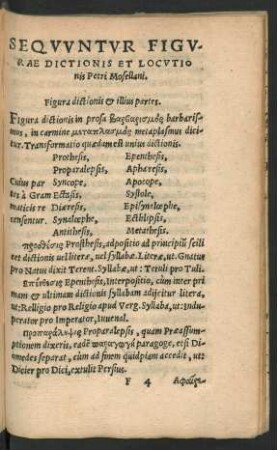 SEQVVNTVR FIGV-
RAE DICTIONIS ET LOCVTIO
nis Petri Mosellani.
Figura dictionis & illius partes.
Figura dictionis in prosa βαρβαρισμὸς barbaris-
mus, in carmine μεταπλασμὸς metaplasmus dici-
tur. Transformatio quædam est unius dictionis.
Prothesis, Epenthesis,
Proparalepsis, Aphæresis,
Cuius par Syncope, Apocope,
tes à Gram Ectasis, Systole,
maticis re Diæresis, Episynalœphe,
censentur. Synalœphe, Ecthlipsis,
Antithesis, Metathesis.
πρόσθεσις Prosthesis, adpositio ad principiũ scili
cet dictionis uel literæ, uel syllabæ. Literæ, ut: Gnatus
pro Natus dixit Terent. Syllabæ, ut: Tetuli pro Tuli.
Ἐπένθεσις Epenthesis, Interpositio, cùm inter pri
mam & ultimam dictionis syllabam adijcitur litera,
ut: Relligio pro Religio apud Verg. Syllaba, ut: Indu-
perator pro Imperator, Iuuenal.
Προπαράληψις Proparalepsis, quam Præassum-
ptionem dixeris, eadẽ παραγωγὴ paragoge, etsi Dio-
medes separat, cùm ad finem quidpiam accedit, ut:
Dicier pro Dici, extulit Persius.
F 4 Ἀφαίρε-